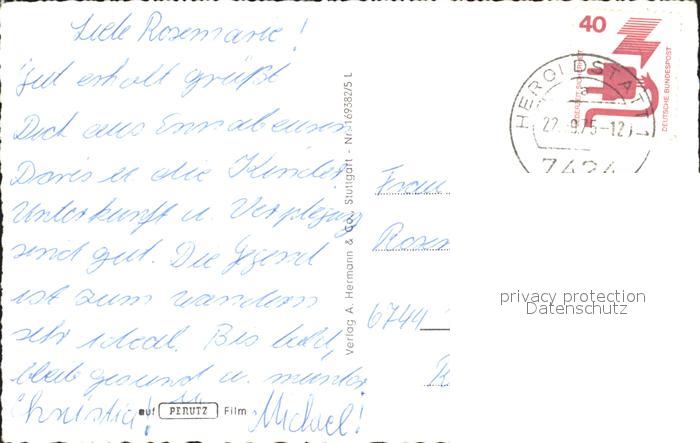 Liebe Rosemarie!
Gut erholt grüßt
Dich aus Ennabeuren
Doris u. die Kinder.
Unterkunft u. Verplegung
sind gut. Die Gegend
ist zum wandern
sehr ideal. Bis bald,
bleib gesund u. munter
Christia! Michael!
auf PERUTZ Film
Verlag A. Hermann & Co., Stuttgart - Nr. 169382/5 L
Frau
Rosem
6744
40
DEUTSCHE BUNDESPOST
HEROLDSTATT 1
a
22.-9.75-12
7424
privacy protection
Datenschutz